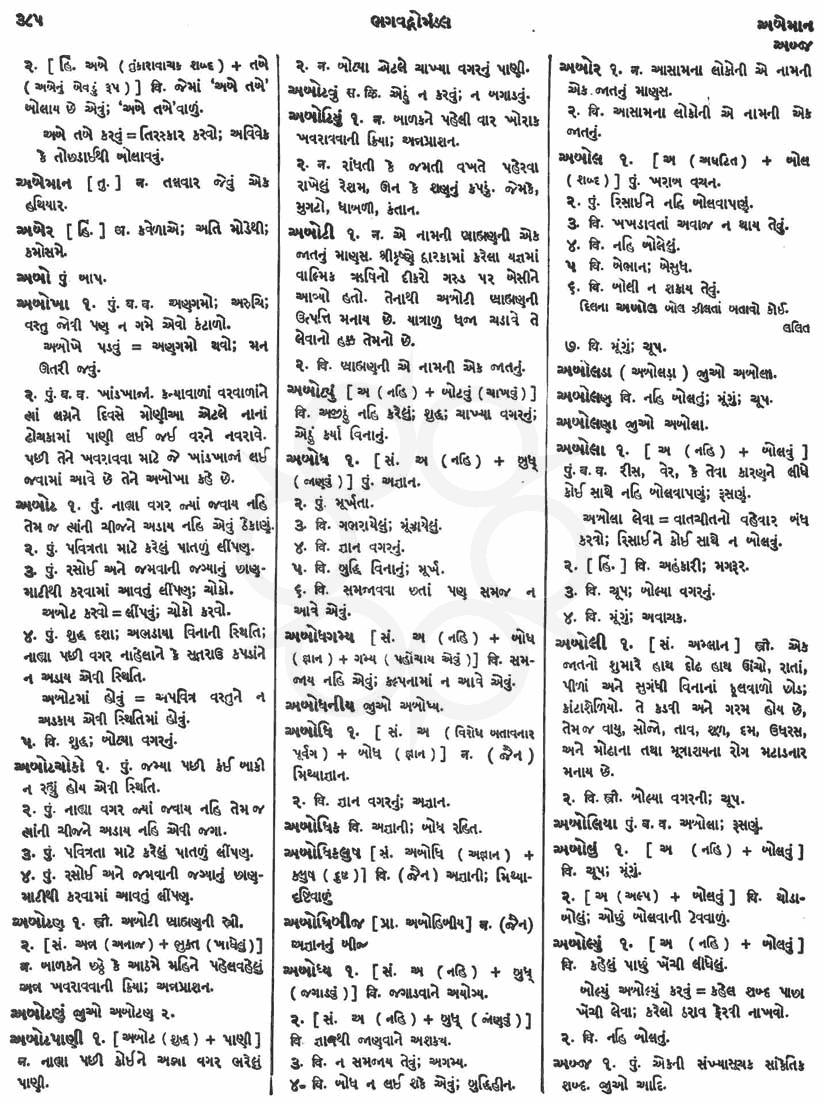 ૩૮૫
ભગવદ્ગોમંડલ
અબેમાન
અબ્જ
૨. [ હિં. અબે ( તુંકારાવાચક શબ્દ ) + તબે
( અબેનું બેવડું રૂપ ) ] વિ. જેમાં ‘અબે તબે’
બોલાય છે એવું; ‘અબે તબે’વાળું.
અબે તબે કરવું = તિરસ્કાર કરવો; અવિવેક
કે તોછડાઈથી બોલાવવું.
અબેમાન [ તુ. ] ન. તલવાર જેવું એક
હથિયાર.
અબેર [ હિં. ] અ. કવેળાએ; અતિ મોડેથી;
કમોસમે.
અબો પું બાપ.
અબોખા ૧. પું. બ. વ. અણગમો; અરુચિ;
વસ્તુ જોવી પણ ન ગમે એવો કંટાળો.
અબોખે પડવું = અણગમો થવો; મન
ઊતરી જવું.
૨. પું. બ. વ. ખાંડખાજાં. કન્યાવાળાં વરવાળાંને
ત્યાં લગ્નને દિવસે મોણીઆ એટલે નાનાં
ઢોચકામાં પાણી લઈ જઈ વરને નવરાવે.
પછી તેને ખવરાવવા માટે જે ખાંડખાજાં લઈ
જવામાં આવે છે તેને અબોખા કહે છે.
અબોટ ૧. પું. નાહ્યા વગર જ્યાં જવાય નહિ
તેમ જ ત્યાંની ચીજને અડાય નહિ એવું ઠેકાણું.
૨. પું. પવિત્રતા માટે કરેલું પાતળું લીંપણ.
૩. પું. રસોઈ અને જમવાની જગ્યાનું છાણ-
માટીથી કરવામાં આવતું લીંપણ; ચોકો.
અબોટ કરવો = લીંપવું; ચોકો કરવો.
૪. પું. શુદ્ધ દશા; અભડાયા વિનાની સ્થિતિ;
નાહ્યા પછી વગર નાહેલાંને કે સુતરાઉ કપડાંને
ન અડાય એવી સ્થિતિ.
અબોટમાં હોવું = અપવિત્ર વસ્તુને ન
અડકાય એવી સ્થિતિમાં હોવું.
૫. વિ. શુદ્ધ; બોટ્યા વગરનું.
અબોટચોકો ૧. પું. જમ્યા પછી કંઈ બાકી
ન રહ્યું હોય એવી સ્થિતિ.
૨. પું. નાહ્યા વગર જ્યાં જવાય નહિ તેમ જ
ત્યાંની ચીજને અડાય નહિ એવી જગા.
૩. પું. પવિત્રતા માટે કરેલું પાતળું લીંપણ.
૪. પું. રસોઈ અને જમવાની જગ્યાનું છાણ-
માટીથી કરવામાં આવતું લીંપણ.
અબોટણ ૧. સ્ત્રી. અબોટી બ્રાહ્મણની સ્ત્રી.
૨. [ સં. અન્ન ( અનાજ ) + ભુક્ત ( ખાધેલું ) ]
ન. બાળકને છઠ્ઠે કે આઠમે મહિને પહેલવહેલું
અન્ન ખવરાવવાની ક્રિયા; અન્નપ્રાશન.
અબોટણું જીઓ અબોટણ ૨.
અબોટપાણી ૧. [ અબોટ ( શુદ્ધ ) + પાણી ]
ન. નાહ્યા પછી કોઈને અડ્યા વગર ભરેલું
પાણી.
૨. ન. બોટ્યા એટલે ચાખ્યા વગરનું પાણી.
અબોટવું સ. ક્રિ. એઠું ન કરવું; ન બગાડવું.
અબોટિયું ૧. ન. બાળકને પહેલી વાર ખોરાક
ખવરાવવાની ક્રિયા; અન્નપ્રાશન.
૨. ન. રાંધતી કે જમતી વખતે પહેરવા
રાખેલું રેશમ, ઊન કે શણનું કપડું. જેમકે,
મુગટો, ધાબળી, કંતાન.
અબોટી ૧. ન. એ નામની બ્રાહ્મણની એક
જાતનું માણસ. શ્રીકૃષ્ણે દ્વારકામાં કરેલા યજ્ઞમાં
વાલ્મિક ઋષિનો દીકરો ગરુડ પર બેસીને
આવ્યો હતો. તેનાથી અબોટી બ્રાહ્મણની
ઉત્પત્તિ મનાય છે. યાત્રાળુ ધજા ચડાવે તે
લેવાનો હક્ક તેમનો છે.
૨. વિ. બ્રાહ્મણની એ નામની એક જાતનું.
અબોટ્યું [ અ ( નહિ ) + બોટવું ( ચાખવું ) ]
વિ. અજીઠું નહિ કરેલું; શુદ્ધ; ચાખ્યા વગરનું;
એઠું કર્યા વિનાનું.
અબોધ ૧. [ સં. અ ( નહિ ) + બુધ્
( જાણવું ) ] પું. અજ્ઞાન.
૨. પું. મૂર્ખતા.
૩. વિ. ગભરાયેલું; મૂંઝાયેલું.
૪. વિ. જ્ઞાન વગરનું.
૫. વિ. બુદ્ધિ વિનાનું; મૂર્ખ.
૬. વિ. સમજાવવા છતાં પણ સમજ ન
આવે એવું.
અબોધગમ્ય [ સં. અ ( નહિ ) + બોધ
( જ્ઞાન ) + ગમ્ય ( પહોંચાય એવું ) ] વિ. સમ-
જાય નહિ એવું; કલ્પનામાં ન આવે એવું.
અબોધનીય જીઓ અબોધ્ય.
અબોધિ ૧. [ સં. અ ( વિરોધ બતાવનાર
પૂર્વગ ) + બોધ ( જ્ઞાન ) ] ન. ( જૈન )
મિથ્યાજ્ઞાન.
૨. વિ. જ્ઞાન વગરનું; અજ્ઞાન.
અબોધિક વિ. અજ્ઞાની; બોધ રહિત.
અબોધિકલુષ [ સં. અબોધિ ( અજ્ઞાન ) +
કલુષ ( દુષ્ટ ) ] વિ. ( જૈન ) અજ્ઞાની; મિથ્યા-
દૃષ્ટિવાળું
અબોધિબીજ [ પ્રા. અબોહિબીય ] ન. ( જૈન )
અજ્ઞાનનું બીજ
અબોધ્ય ૧. [ સં. અ ( નહિ ) + બુધ્
( જગાડવું ) ] વિ. જગાડવાને અયોગ્ય.
૨. [ સં. અ ( નહિ ) + બુધ્ ( જાણવું ) ]
વિ જ્ઞાનથી જાણવાને અશક્ય.
૩. વિ. ન સમજાય તેવું; અગમ્ય.
૪. વિ. બોધ ન લઈ શકે એવું; બુદ્ધિહીન.
અબોર ૧. ન. આસામના લોકોની એ નામની
એક જાતનું માણસ.
૨. વિ. આસામના લોકોની એ નામની એક
જાતનું.
અબોલ ૧. [ અ ( અઘટિત ) + બોલ
( શબ્દ ) ] પું. ખરાબ વચન.
૨. પું. રિસાઈને નહિ બોલવાપણું.
૩. વિ. ખખડાવતાં અવાજ ન થાય તેવું.
૪. વિ. નહિ બોલેલું.
૫ વિ. બેભાન; બેસુધ.
૬. વિ. બોલી ન શકાય તેવું.
દિલના અબોલ બોલ ઝીલતાં બતાવો કોઈ.
લલિત
૭. વિ. મૂંગું; ચૂપ.
અબોલડા ( અબોલડા ) જીઓ અબોલા.
અબોલણ વિ. નહિ બોલતું; મૂંગું; ચૂપ.
અબોલણા જીઓ અબોલા.
અબોલા ૧. [ અ ( નહિ ) + બોલવું ]
પું. બ. વ. રીસ, વેર, કે તેવા કારણને લીધે
કોઈ સાથે નહિ બોલવાપણું; રૂસણું.
અબોલા લેવા = વાતચીતનો વહેવાર બંધ
કરવો; રિસાઈને કોઈ સાથે ન બોલવું.
૨. [ હિં. ] વિ. અહંકારી; મગરૂર.
૩. વિ. ચૂપ; બોલ્યા વગરનું.
૪. વિ. મૂંગું; અવાચક.
અબોલી ૧. [ સં. અમ્લાન ] સ્ત્રી. એક
જાતનો શુમારે હાથ દોઢ હાથ ઊંચો, રાતાં,
પીળાં અને સુગંધી વિનાનાં ફૂલવાળો છોડ;
કાંટાશેળિયો. તે કડવી અને ગરમ હોય છે,
તેમ જ વાયુ, સોજો, તાવ, શૂળ, દમ, ઉધરસ,
અને મોઢાના તથા મૂત્રાશયના રોગ મટાડનાર
મનાય છે.
૨. વિ. સ્ત્રી. બોલ્યા વગરની; ચૂપ.
અબોલિયા પું. બ. વ. અબોલા; રૂસણું.
અબોલું ૧. [ અ ( નહિ ) + બોલવું ]
વિ. ચૂપ; મૂંગું.
૨. [ અ ( અલ્પ ) + બોલવું ] વિ. થોડા-
બોલું; ઓછું બોલવાની ટેવવાળું.
અબોલ્યું ૧. [ અ ( નહિ ) + બોલવું ]
વિ. કહેલું પાછું ખેંચી લીધેલું.
બોલ્યું અબોલ્યું કરવું = કહેલ શબ્દ પાછા
ખેંચી લેવા; કરેલો ઠરાવ ફેરવી નાખવો.
૨. વિ. નહિ બોલતું.
અબ્જ ૧. પું. એકની સંખ્યાસૂચક સાંકેતિક
શબ્દ. જીઓ આદિ.